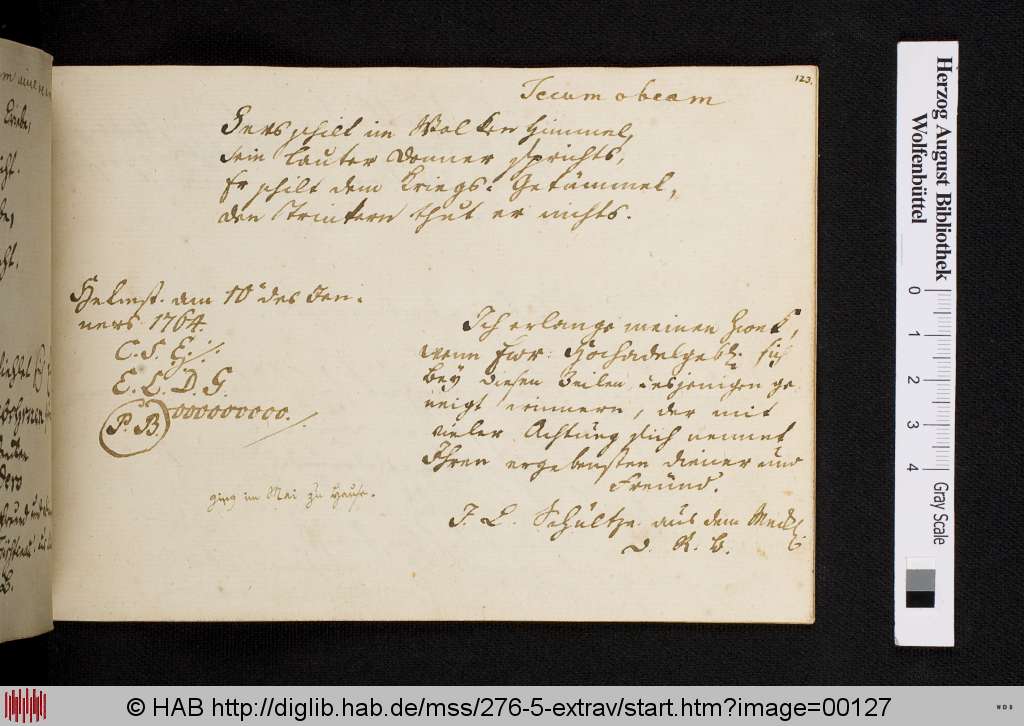 123.
Tecum obeam
schilt im Wolken Himmel,
sein lauter Donner sprichts,
Er schilt dem Kriegs-Getümmel,
den Trinkern thut er nichts.
Helmst. am 10 des Jen-
ners 1764.
C. S. E.
E. L. D. G.
P. B. 0000000000.
ging im Mai zu Hause.
Ich erlange meinen Zweck,
wenn Ewr. Hochadelgeb. sich
bey diesen Zeilen desjenigen ge
neigt erinnern, der mit
vieler Achtung sich nennet
Ihren ergebensten Diener und
Freund.
J. L. Schultze aus dem Meckl.
d. R. B.
Herzog August Bibliothek
Wolfenbüttel
0 1 2 3 4
Gray Scale
© HAB http://diglib.hab.de/mss/276-5-extrav/start.htm?image=00127
WDB